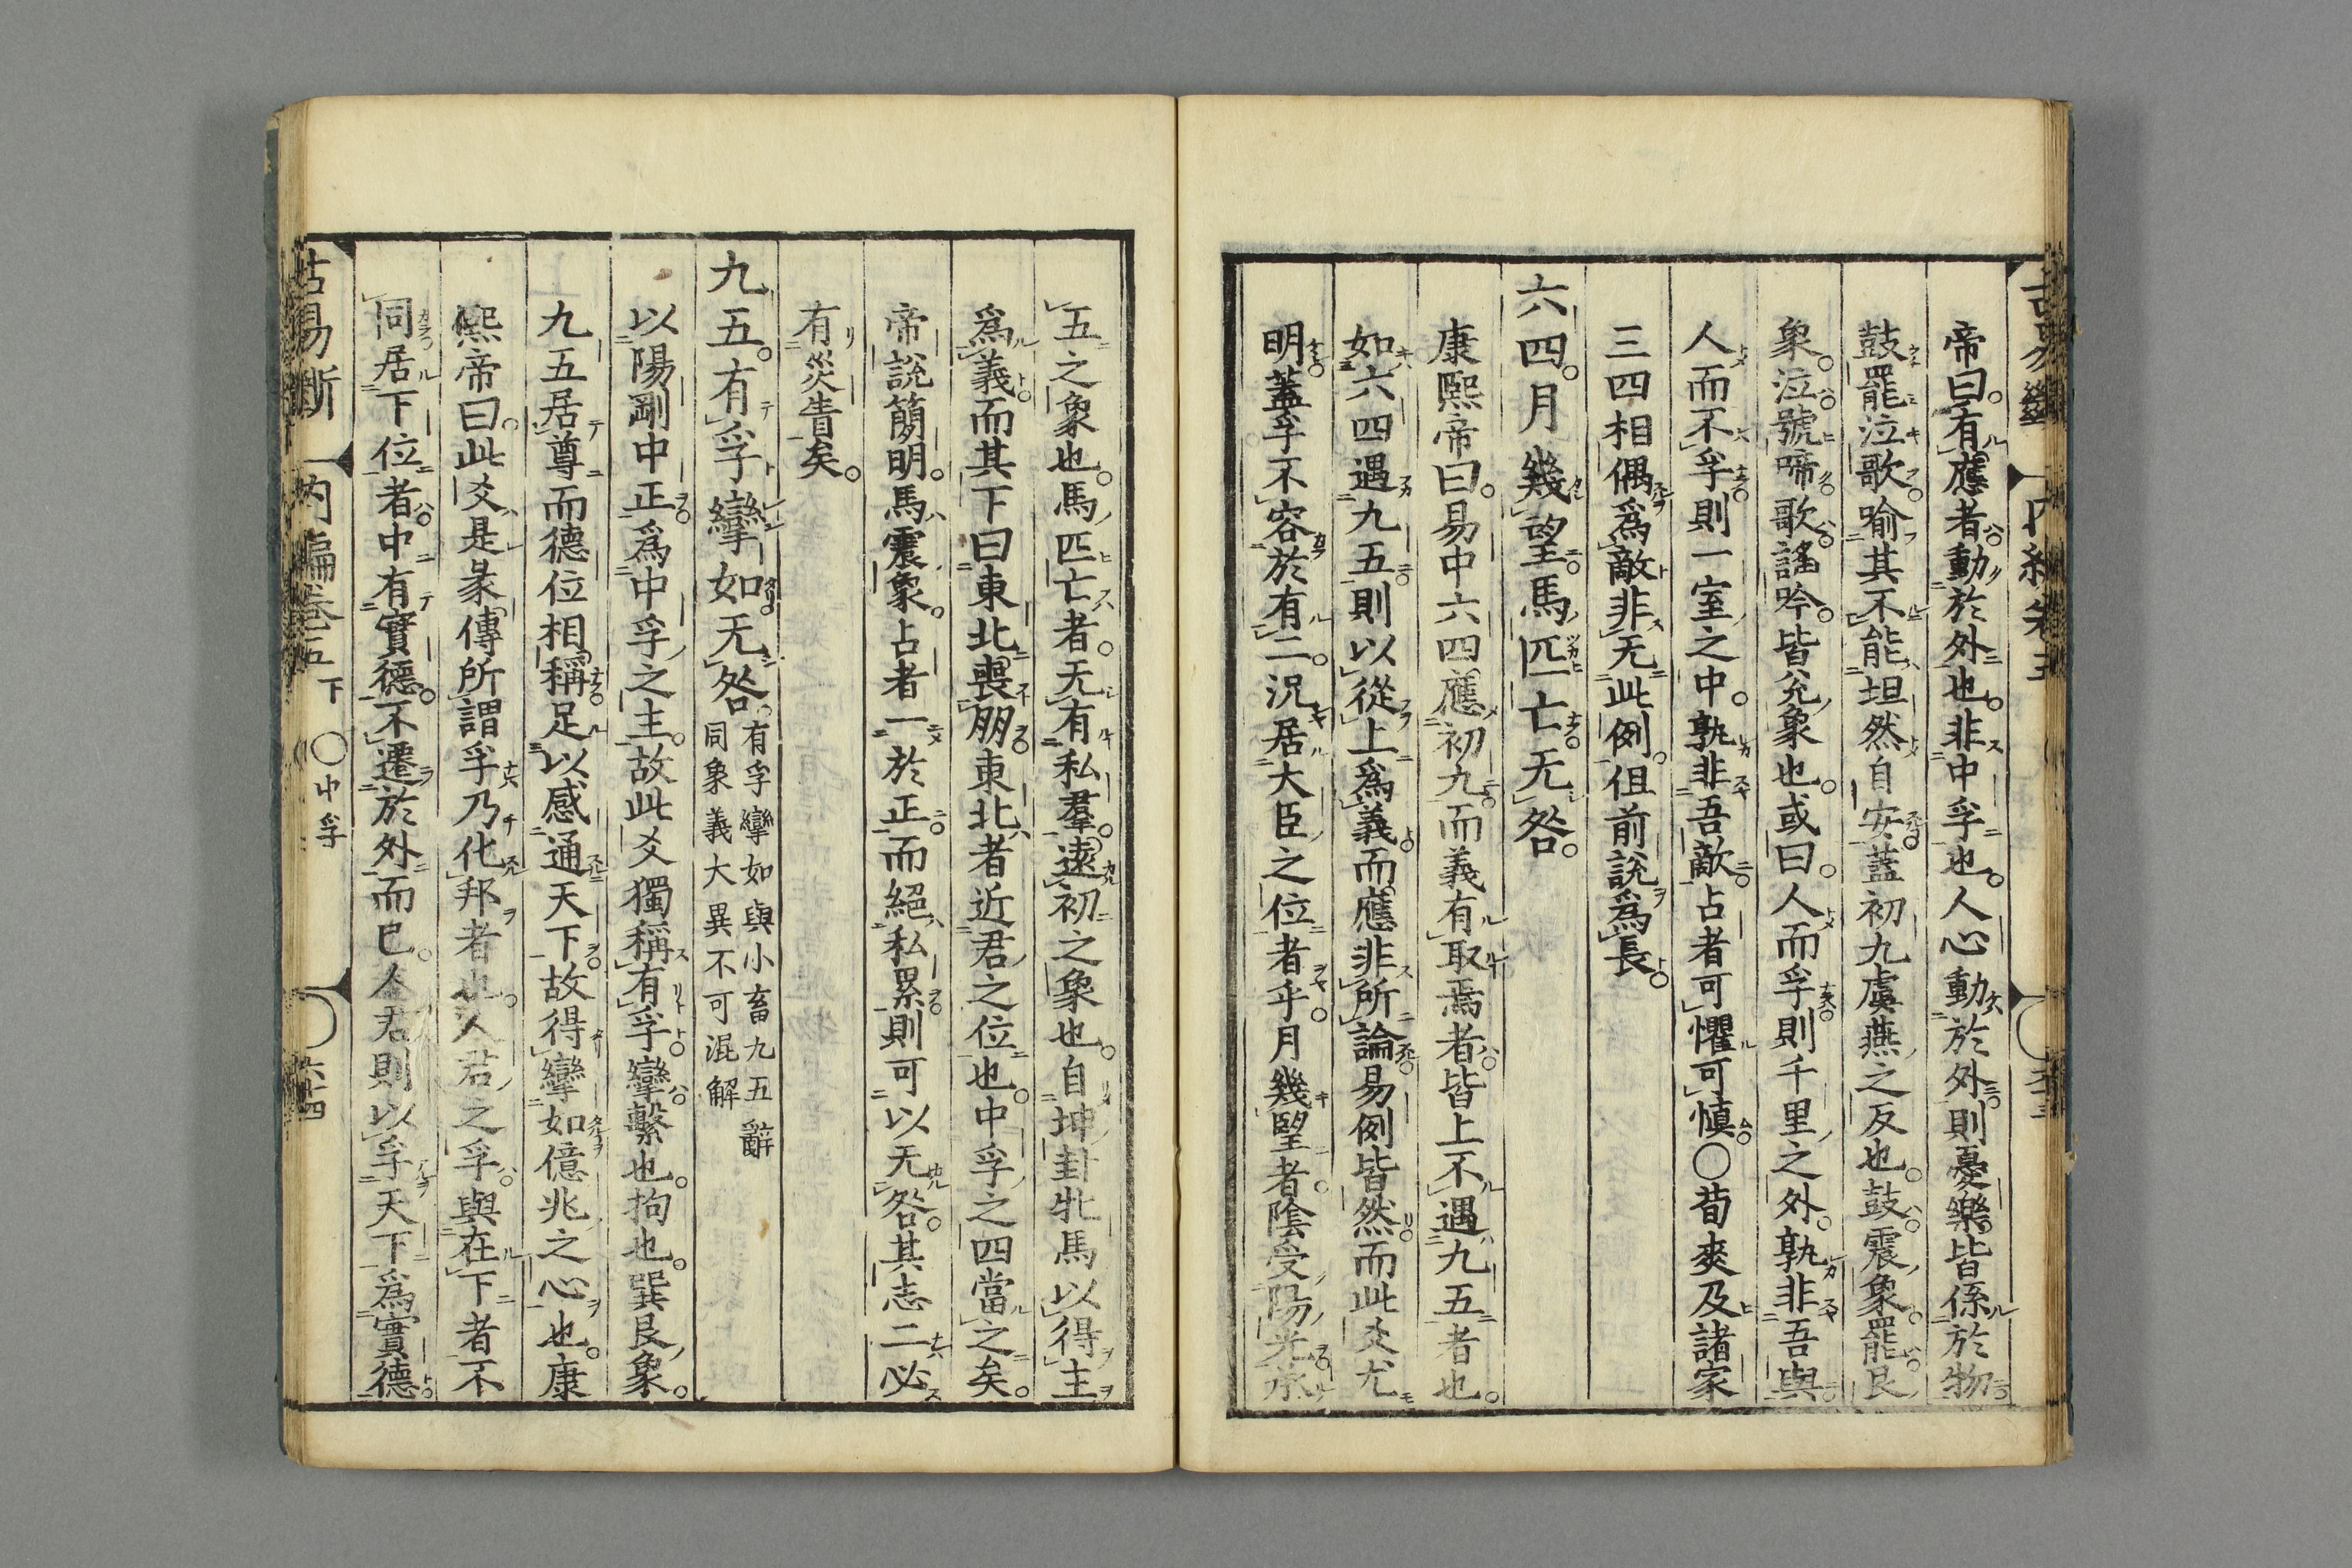 帝曰有應者動於外也非中孚也人心動於外則憂樂皆係於物
鼓罷泣歌喻其不能坦然自安蓋初九虞燕之反也鼓震象罷艮
象泣號啼歌謠吟皆兊象也或曰人而孚則千里之外孰非吾與
人而不孚則一室之中孰非吾敵占者可懼可愼○荀爽及諸家
三四相偶爲敵非无此例但前說爲長
六四月幾望馬匹亡无咎
康熙帝曰易中六四應初九而義有取焉者皆上不遇九五者也
如六四遇九五則以從上爲義而應非所論易例皆然而此爻尤
明蓋孚不容於有二況居大臣之位者乎月幾望者陰受陽光承
五之象也馬匹亡者无有私羣遠初之象也自坤卦牝馬以得主
爲義而其下曰東北喪朋東北者近君之位也中孚之四當之矣
帝說簡明馬震象占者一於正而絕私累則可以无咎其志二必
有災眚矣
九五有孚攣如无咎有孚攣如與小畜九五辭
同象義大異不可混解
以陽剛中正爲中孚之主故此爻獨稱有孚攣繫也拘也巽艮象
九五居尊而德位相稱足以感通天下故得攣如億兆之心也康
熙帝曰此爻是彖傳所謂孚乃化邦者也人君之孚與在下者不
同居下位者中有實德不遷於外而已人君則以孚天下爲實德
古易斷 內編卷五下 ○中孚 六十四